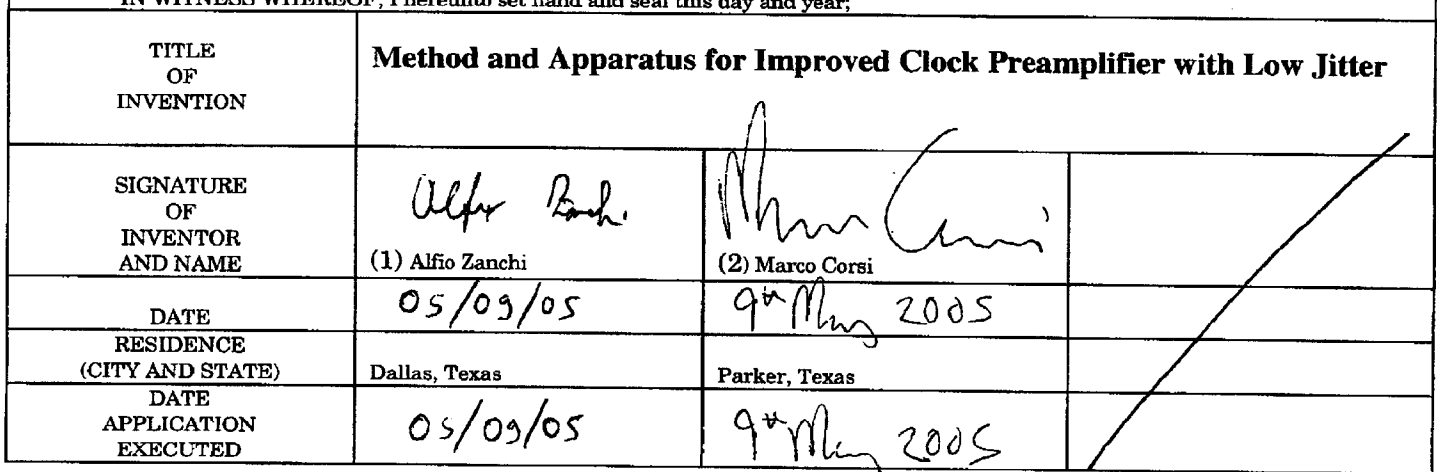 IN WITNESS WHEREOF, I hereunto set hand and seal this day and year;
TITLE
OF
INVENTION
Method and Apparatus for Improved Clock Preamplifier with Low Jitter
SIGNATURE
OF
INVENTOR
AND NAME
Alfio Zanchi
(1) Alfio Zanchi
Marco Corsi
(2) Marco Corsi
DATE
05/09/05
9th May 2005
RESIDENCE
(CITY AND STATE)
Dallas, Texas
Parker, Texas
DATE
APPLICATION
EXECUTED
05/09/05
9th May 2005